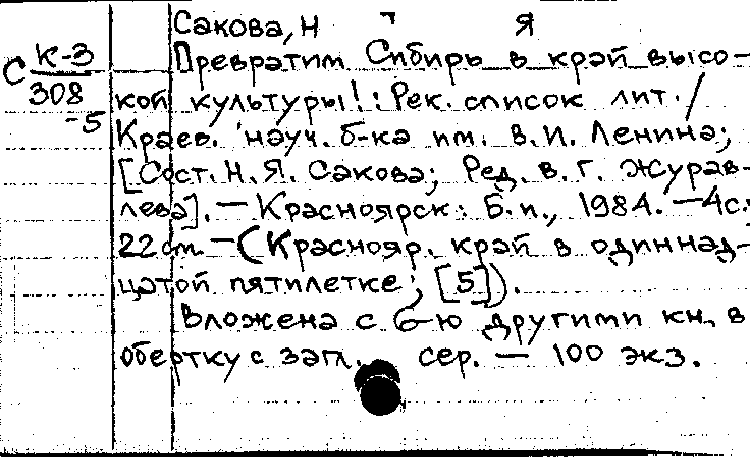 Сакова, Н Я
С К-3
308
-5
Превратим Сибирь в край высо-
кой культуры!: Рек. список лит. /
Краев. науч. б-ка им. В.И. Ленина;
[Сост. Н.Я. Сакова; Ред. В.Г. Журав-
лева]. — Красноярск: Б.и., 1984. — 4с.;
22 см — (Краснояр. край в одиннад-
цатой пятилетке; [5]).
Вложена с 6-ю другими кн. в
обертку с загл. сер. — 100 экз.